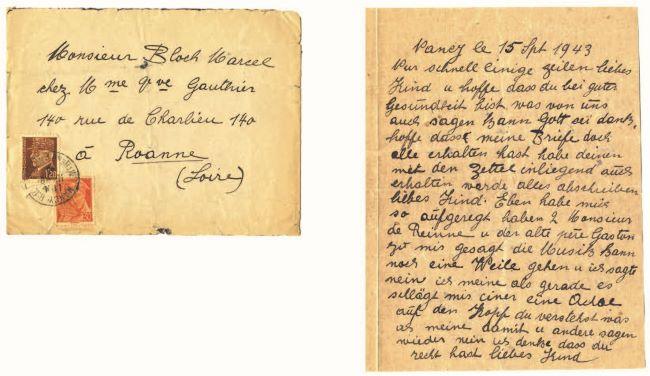 Monsieur Bloch Marcel
chez Mme Vve Gauthier
140 rue de Charlieu 140
à Roanne
(Loire)
1F20
Nancy le 15 Spt 1943
Nur schnell einige zeilen liebes
Kind u hoffe dass du bei guter
Gesundheit bist was von uns
auch sagen kann Gott sei dank,
hoffe dass meine Briefe doch
alle erhalten hast habe deinen
mit den Zettel inliegend auch
erhalten werde alles abschreiben
liebes Kind. Eben habe mich
so aufgeregt haben 2 Monsieur
de Reinne u der alte père Gaston
zu mir gesagt die Musik kann
noch eine Weile gehen u ich sagte
nein ich meine als gerade es
schlägt mir einer eine
auf den Kopf du verstehst was
ich meine damit u andere sagen
wieder nein ich denke dass du
recht hast liebes Kind